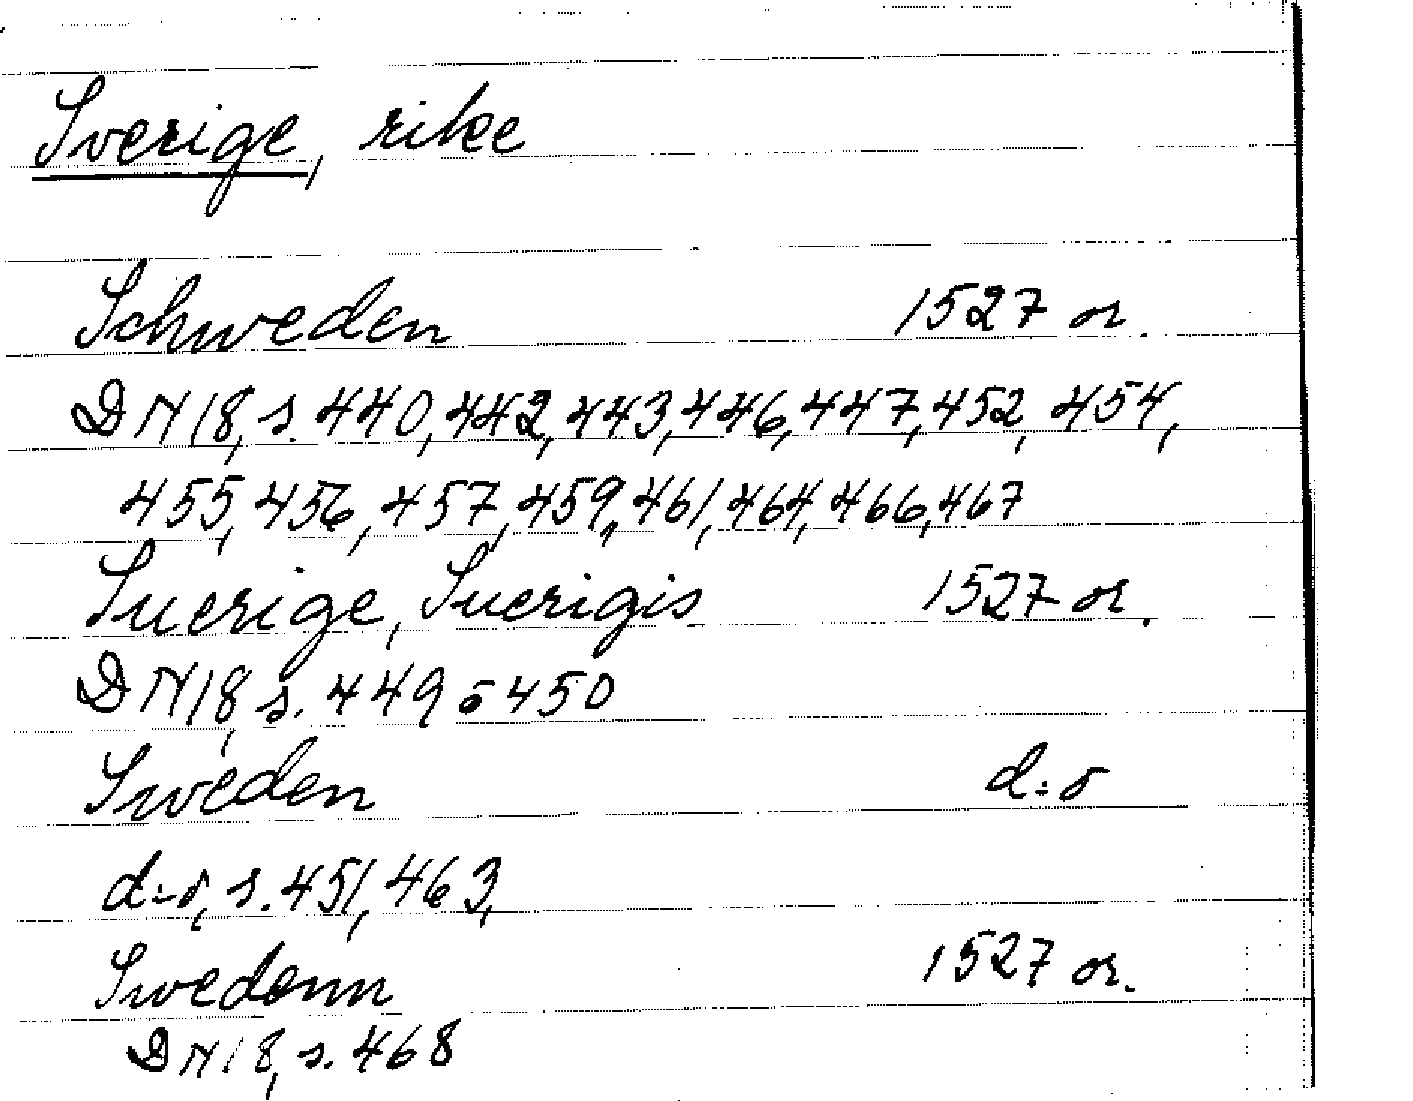 Sverige, rike
Schweden 1527 or.
DN 18, s. 440, 442, 443, 446, 447, 452, 454,
455, 456, 457, 459, 461, 464, 466, 467
Suerige, Suerigis 1527 or.
DN 18, s. 449 o 450
Sweden d:o
d:o, s. 451, 463,
Swedenn 1527 or.
DN 18, s. 468